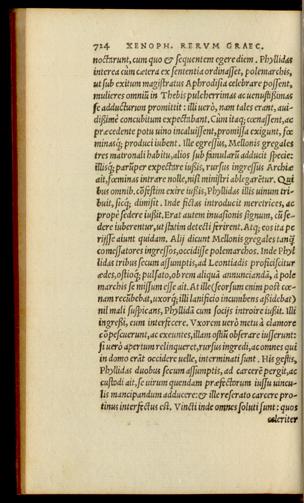 724 XENOPH. RERVM GRAEC.
noctarunt, cum quo & sequentem egere diem. Phyllidas
interea cùm cætera ex sententia ordinasset, polemarchis,
ut sub exitum magistratus Aphrodisia celebrare possent,
mulieres omniũ in Thebis pulcherrimas ac uenustißimas
se adducturum promittit: illi uerò, nam tales erant, aui-
dißimè concubitum expectabant. Cum itaq; cœnassent, ac
præcedente potu uino incaluissent, promissa exigunt, fœ
minasq́; produci iubent. Ille egressus, Mellonis gregales
tres matronali habitu, alios sub famularũ adducit specie:
illisq́; parũper expectare iußis, rursus ingressus Archiæ
ait, fœminas intrare nolle, nisi ministri ablegarẽtur. Qui
bus omnib. cõfestim exire iußis, Phyllidas illis uinum tri-
buit, sicq́; dimisit. Inde fictas introducit meretrices, ac
propè sedere iußit. Erat autem inuasionis signum, cũ se-
dere iuberentur, ut statim detecti ferirent. Atq; eos ita pe
rijsse aiunt quidam. Alij dicunt Mellonis gregales tanq̃
comessatores ingressos, occidisse polemarchos. Inde Phyl
lidas tribus secum assumptis, ad Leontiadis proficiscitur
ædes, ostioq́; pulsato, ob rem aliquã annunciandã, à pole
marchis se missum esse ait. At ille (seorsum enim post cœ-
nam recũbebat, uxorq́; illi lanificio incumbens aßidebat)
nil mali suspicans, Phyllidã cum socijs introire iußit. Illi
ingreßi, eum interfecere. Vxorem uerò metu à clamore
cõpescuerunt, ac exeuntes, illam ostiũ obserare iusserunt:
si uerò apertum relinqueret, rursus ingredi, ac omnes qui
in domo erãt occidere uelle, interminati sunt. His gestis,
Phyllidas duobus secum assumptis, ad carcerẽ pergit, ac
custodi ait, se uirum quendam præfectorum iussu uincu-
lis mancipandum adducere: & ille reserato carcere pro-
tinus interfectus est. Vincti inde omnes soluti sunt: quos
celeriter